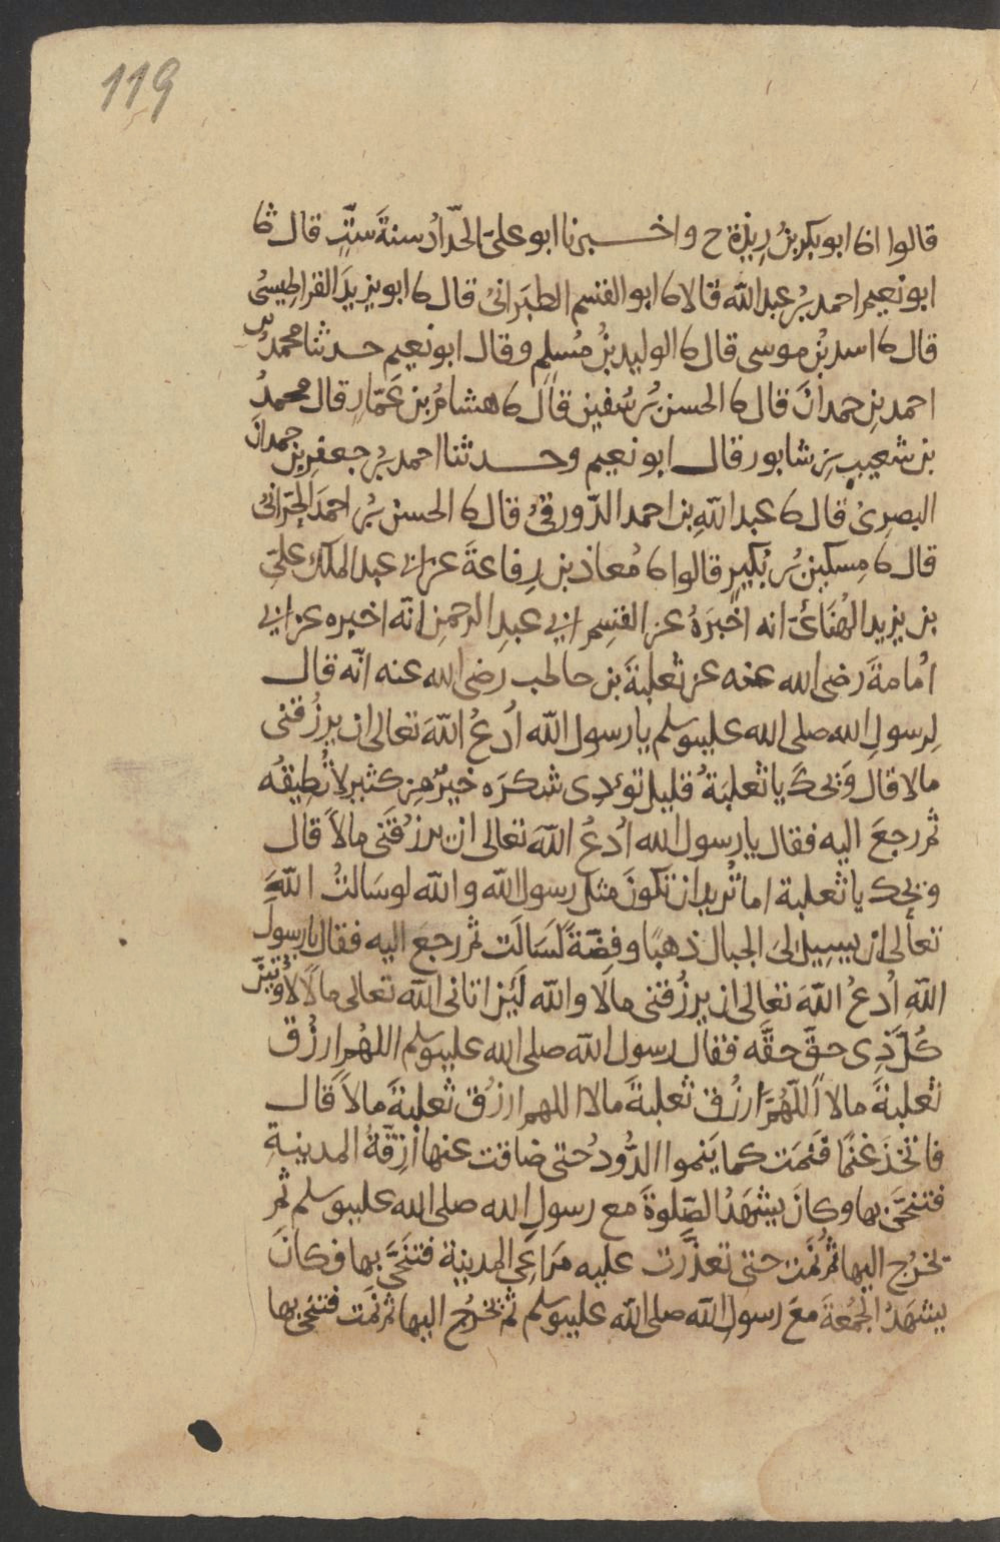 119
قالوا انا ابو بكر بنُ رِيذة ح واخـــبرنا ابو على الحدّادُ سنةَ ستٍّ قال ثا
ابو نعيم احمد بنُ عبد الله قالا ثا ابو القسم الطبَرانىُ قال ثا ابو يزيدَ القراطِيسىُ
قال ثا اسد بنُ موسى قال ثا الوليد بنُ مُسلمٍ وقال ابو نعيم حدثنا محمد بن
احمد بنِ حمدانَ قال ثا الحسن بنُ سُفين قال ثا هشامُ بن عَمّارٍ قال محمدُ
بن شعيبِ بنِ شابور قال ابو نعيم وحــدثنا احمد بنُ جعفر بن حمدانَ
البصرىُ قال ثا عبد اللهِ بن احمد الدّورقىُ قال ثا الحسن بنُ احمدَ الحرّانىُ
قال ثا مِسكين بنُ بُكيرٍ قالوا ثا مُعاذ بن رِفاعةَ عن ابى عبد الملك علىّ
بن يزيد الهُنَائىّ انه اخبَرَهُ عن القسِم ابى عبدِ الرحمنِ انّه اخبره عن ابى
امُامةَ رضى الله عنه عن ثعلبةَ بن حاطب رضى الله عنه انّه قال
لِرسولِ الله صلى الله عليه وسلم يا رسول الله اُدعُ اللهَ تعالى ان يرزُقنى
مالا قال وَيحكَ يا ثعلبَةُ قليل تؤدِى شكرَه خيرٌ مِن كثير لا تُطِيقُه
ثم رجعَ اليه فقال يا رسول الله ادُعُ اللهَ تعالى ان يرزُقَنى مالاً قال
ويحك يا ثعلبة اما تُريد ان تكونَ مثل رسول الله والله لو سَالتُ اللهَ
تعالى ان يسِيل لىَ الجبال ذهبًا وفضّةً لَسَالَت ثم رجع اليه فقال يا رسول
اللهِ اُدعُ اللهَ تعالى ان يرزُقنى مالًا والله لَئِن اتانى الله تعالى مالًا لأُوتيَنّ
كُلَّ ذِى حقٍّ حقَّه فقال رسول الله صلى الله عليه وسلم اللهُم ارزُق
ثعلبةَ مالا اللّهُمَّ ارزُق ثعلبةَ مالا اللهم ارزُق ثعلبةَ مالاً قال
فاتخذَ غنمًا فَنَمَت كما يَنموا الدُّودُ حتى ضاقت عنها ازِقّةُ المدينةِ
فتنحَّى بها وكانَ يشهَدُ الصّلوةَ مع رسولِ الله صلى الله عليه وسلم ثم
يخرُج اليها ثم نَمَت حتى تعذّرت عليه مَرَاعِى المدينة فتنَحَّى بها فكانَ
يشهَدُ الجُمُعةَ معَ رسولِ الله صلى الله عليه وسلم ثم يخرُج اليها ثم نمَت فتنحّى بها